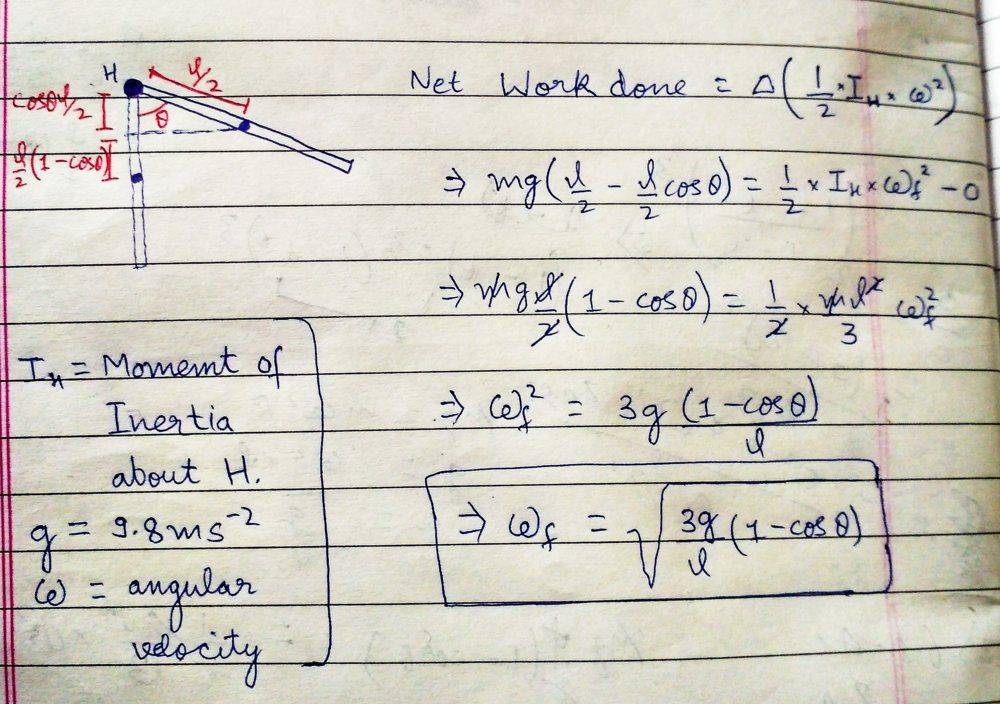 H
l/2
cosθ l/2
θ
l/2 (1-cosθ)
Net Work done = Δ(1/2 × I_H × ω²)
⇒ mg(l/2 - l/2 cosθ) = 1/2 × I_H × ω_f² - 0
⇒ mg l/2 (1 - cosθ) = 1/2 × ml²/3 ω_f²
⇒ ω_f² = 3g (1-cosθ)/l
⇒ ω_f = √(3g/l (1-cosθ))
I_H = Moment of
Inertia
about H.
g = 9.8ms⁻²
ω = angular
velocity